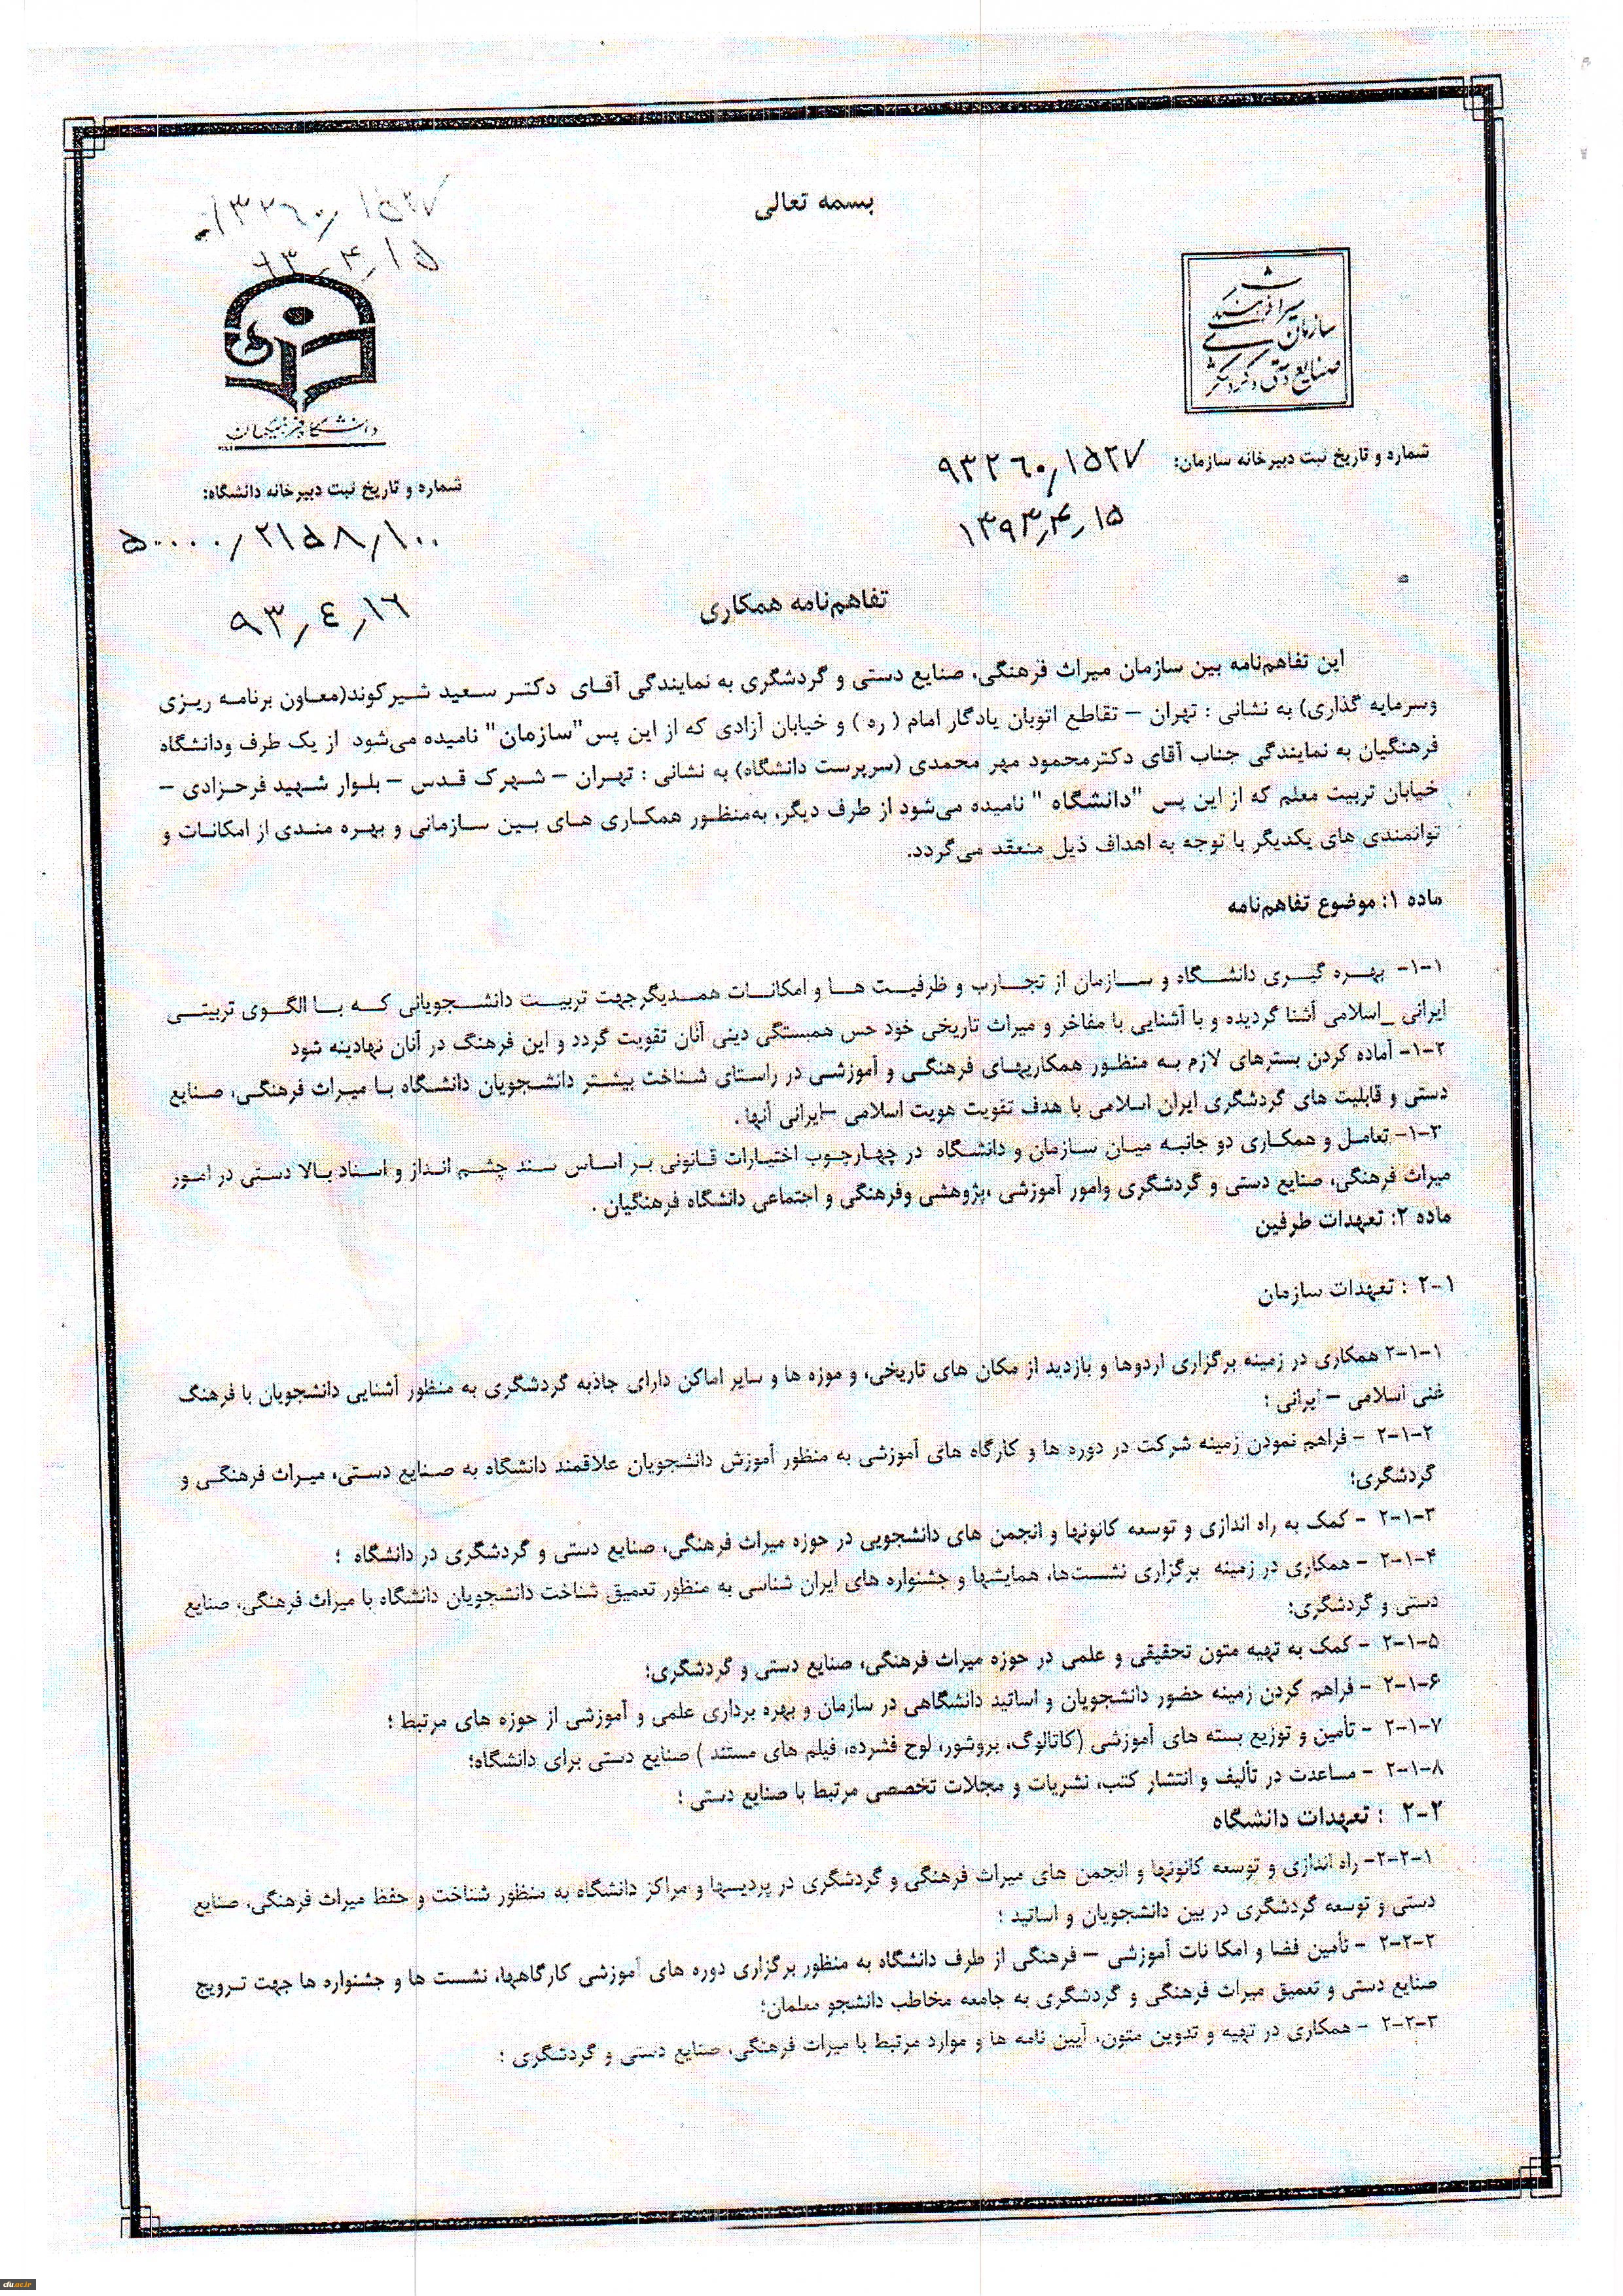 بسمه تعالی
۹۳۲۶۰/۱۵۲۷
۹۳/۴/۱۵
سازمان میراث فرهنگی
صنایع دستی و گردشگری
دانشگاه فرهنگیان
شماره و تاریخ ثبت دبیرخانه سازمان: ۹۳۲۶۰/۱۵۲۷
۱۳۹۳/۴/۱۵
شماره و تاریخ ثبت دبیرخانه دانشگاه:
۵۰۰۰۰/۲۱۵۸/۱۰۰
۹۳/۴/۱۶
تفاهم‌نامه همکاری
این تفاهم‌نامه بین سازمان میراث فرهنگی، صنایع دستی و گردشگری به نمایندگی آقای دکتر سعید شیرکوند(معاون برنامه ریزی
وسرمایه گذاری) به نشانی : تهران – تقاطع اتوبان یادگار امام ( ره ) و خیابان آزادی که از این پس "سازمان" نامیده می‌شود از یک طرف ودانشگاه
فرهنگیان به نمایندگی جناب آقای دکترمحمود مهر محمدی (سرپرست دانشگاه) به نشانی : تهران – شهرک قدس – بلوار شهید فرحزادی –
خیابان تربیت معلم که از این پس "دانشگاه " نامیده می‌شود از طرف دیگر، به‌منظور همکاری های بین سازمانی و بهره مندی از امکانات و
توانمندی های یکدیگر با توجه به اهداف ذیل منعقد می‌گردد.
ماده ۱: موضوع تفاهم‌نامه
۱-۱- بهره گیری دانشگاه و سازمان از تجارب و ظرفیت ها و امکانات همدیگرجهت تربیت دانشجویانی که با الگوی تربیتی
ایرانی _اسلامی آشنا گردیده و با آشنایی با مفاخر و میراث تاریخی خود حس همبستگی دینی آنان تقویت گردد و این فرهنگ در آنان نهادینه شود
۱-۲- آماده کردن بسترهای لازم به منظور همکاریهای فرهنگی و آموزشی در راستای شناخت بیشتر دانشجویان دانشگاه با میراث فرهنگی، صنایع
دستی و قابلیت های گردشگری ایران اسلامی با هدف تقویت هویت اسلامی –ایرانی آنها .
۱-۳- تعامل و همکاری دو جانبه میان سازمان و دانشگاه در چهارچوب اختیارات قانونی بر اساس سند چشم انداز و اسناد بالا دستی در امور
میراث فرهنگی، صنایع دستی و گردشگری وامور آموزشی ،پژوهشی وفرهنگی و اجتماعی دانشگاه فرهنگیان .
ماده ۲: تعهدات طرفین
۲-۱ : تعهدات سازمان
۲-۱-۱ همکاری در زمینه برگزاری اردوها و بازدید از مکان های تاریخی، و موزه ها و سایر اماکن دارای جاذبه گردشگری به منظور آشنایی دانشجویان با فرهنگ
غنی اسلامی – ایرانی ؛
۲-۱-۲ - فراهم نمودن زمینه شرکت در دوره ها و کارگاه های آموزشی به منظور آموزش دانشجویان علاقمند دانشگاه به صنایع دستی، میراث فرهنگی و
گردشگری؛
۲-۱-۳ - کمک به راه اندازی و توسعه کانونها و انجمن های دانشجویی در حوزه میراث فرهنگی، صنایع دستی و گردشگری در دانشگاه ؛
۲-۱-۴ - همکاری در زمینه برگزاری نشست‌ها، همایشها و جشنواره های ایران شناسی به منظور تعمیق شناخت دانشجویان دانشگاه با میراث فرهنگی، صنایع
دستی و گردشگری؛
۲-۱-۵ - کمک به تهیه متون تحقیقی و علمی در حوزه میراث فرهنگی، صنایع دستی و گردشگری؛
۲-۱-۶ - فراهم کردن زمینه حضور دانشجویان و اساتید دانشگاهی در سازمان و بهره برداری علمی و آموزشی از حوزه های مرتبط ؛
۲-۱-۷ - تأمین و توزیع بسته های آموزشی (کاتالوگ، بروشور، لوح فشرده، فیلم های مستند ) صنایع دستی برای دانشگاه؛
۲-۱-۸ - مساعدت در تألیف و انتشار کتب، نشریات و مجلات تخصصی مرتبط با صنایع دستی ؛
۲-۲ : تعهدات دانشگاه
۲-۲-۱- راه اندازی و توسعه کانونها و انجمن های میراث فرهنگی و گردشگری در پردیسها و مراکز دانشگاه به منظور شناخت و حفظ میراث فرهنگی، صنایع
دستی و توسعه گردشگری در بین دانشجویان و اساتید ؛
۲-۲-۲ - تأمین فضا و امکا نات آموزشی – فرهنگی از طرف دانشگاه به منظور برگزاری دوره های آموزشی کارگاهها، نشست ها و جشنواره ها جهت ترویج
صنایع دستی و تعمیق میراث فرهنگی و گردشگری به جامعه مخاطب دانشجو معلمان؛
۲-۲-۳ - همکاری در تهیه و تدوین متون، آیین نامه ها و موارد مرتبط با میراث فرهنگی، صنایع دستی و گردشگری ؛
cfu.ac.ir